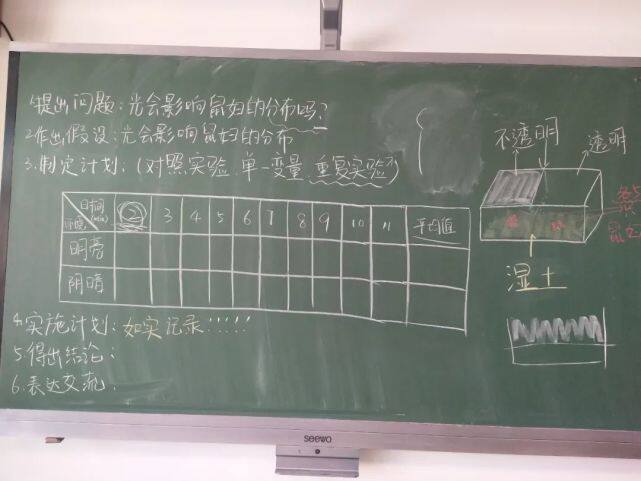 1.提出问题：光会影响鼠妇的分布吗？
2.作出假设：光会影响鼠妇的分布
3.制定计划：(对照实验、单一变量、重复实验)
时间(min) 环境 2 3 4 5 6 7 8 9 10 11 平均值
明亮
阴暗
4.实施计划：如实记录!!!!!
5.得出结论：
6.表达交流：
不透明 透明
湿土
seewo